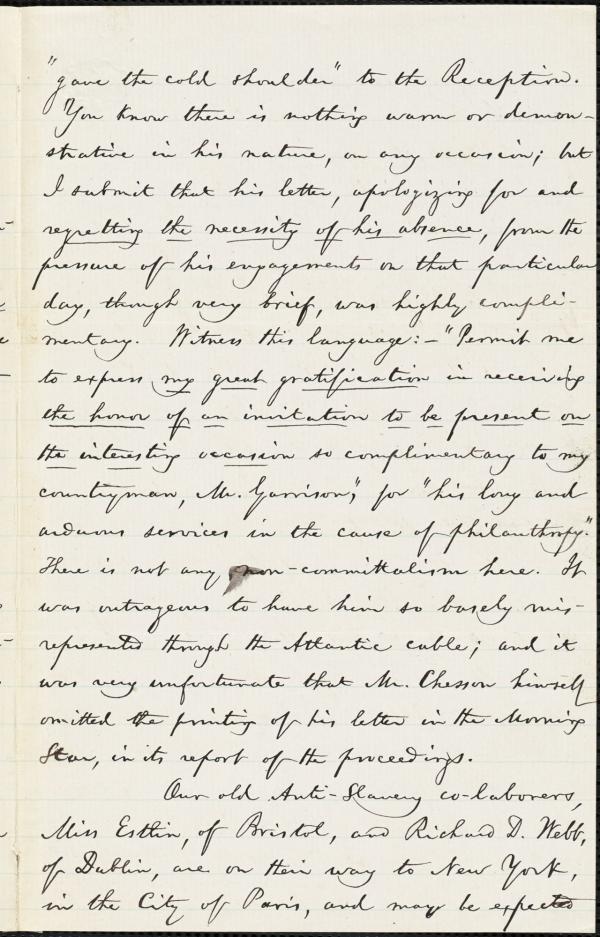 "gave the cold shoulder" to the Reception.
You know there is nothing warm or demon-
strative in his nature, on any occasion; but
I submit that his letter, apologizing for and
regretting the necessity of his absence, from the
pressure of his engagements on that particular
day, though very brief, was highly compli-
mentary. Witness this language:—"Permit me
to express my great gratification in receiving
the honor of an invitation to be present on
the interesting occasion so complimentary to my
countryman, Mr. Garrison", for "his long and
arduous services in the cause of philanthropy."
There is not any non-committalism here. It
was outrageous to have him so basely mis-
represented through the Atlantic cable; and it
was very unfortunate that Mr. Chesson himself
omitted the printing of his letter in the Morning
Star, in its report of the proceedings.
Our old Anti-Slavery co-laborers,
Miss Estlin, of Bristol, and Richard D. Webb,
of Dublin, are on their way to New York,
in the City of Paris, and may be expected